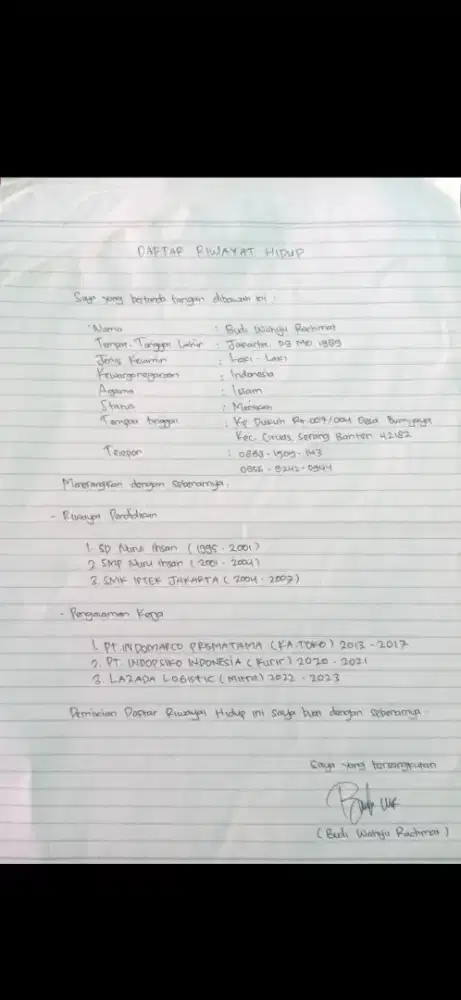 DAFTAR RIWAYAT HIDUP
Saya yang bertanda tangan dibawah ini :
Nama : Budi Wahyu Rachmat
Tempat, Tanggal Lahir : Jakarta, 09 Mei 1989
Jenis Kelamin : Laki - Laki
Kewarganegaraan : Indonesia
Agama : Islam
Status : Menikah
Tempat tinggal : Kp Dukuh Rt.007/004 Desa
Kec. Ciruas, Serang Banten 42182
Telepon : 0838-1909-1143
Menerangkan dengan sebenarnya.
- Riwayat Pendidikan
1. SD Nurul Ihsan (1995 - 2001)
2. SMP Nurul Ihsan (2001 - 2004)
3. SMK IPTEK JAKARTA (2004 - 2007)
- Pengalaman Kerja
1. PT. INDOMARCO PRISMATAMA (KA.TOKO) 2013 - 2017
2. PT. INDOPSIKO INDONESIA (Kurir) 2020 - 2021
3. LAZADA LOGISTIC (Mitra) 2022 - 2023
Demikian Daftar Riwayat Hidup ini saya buat dengan sebenarnya.
Saya yang bersangkutan
(Budi Wahyu Rachmat)